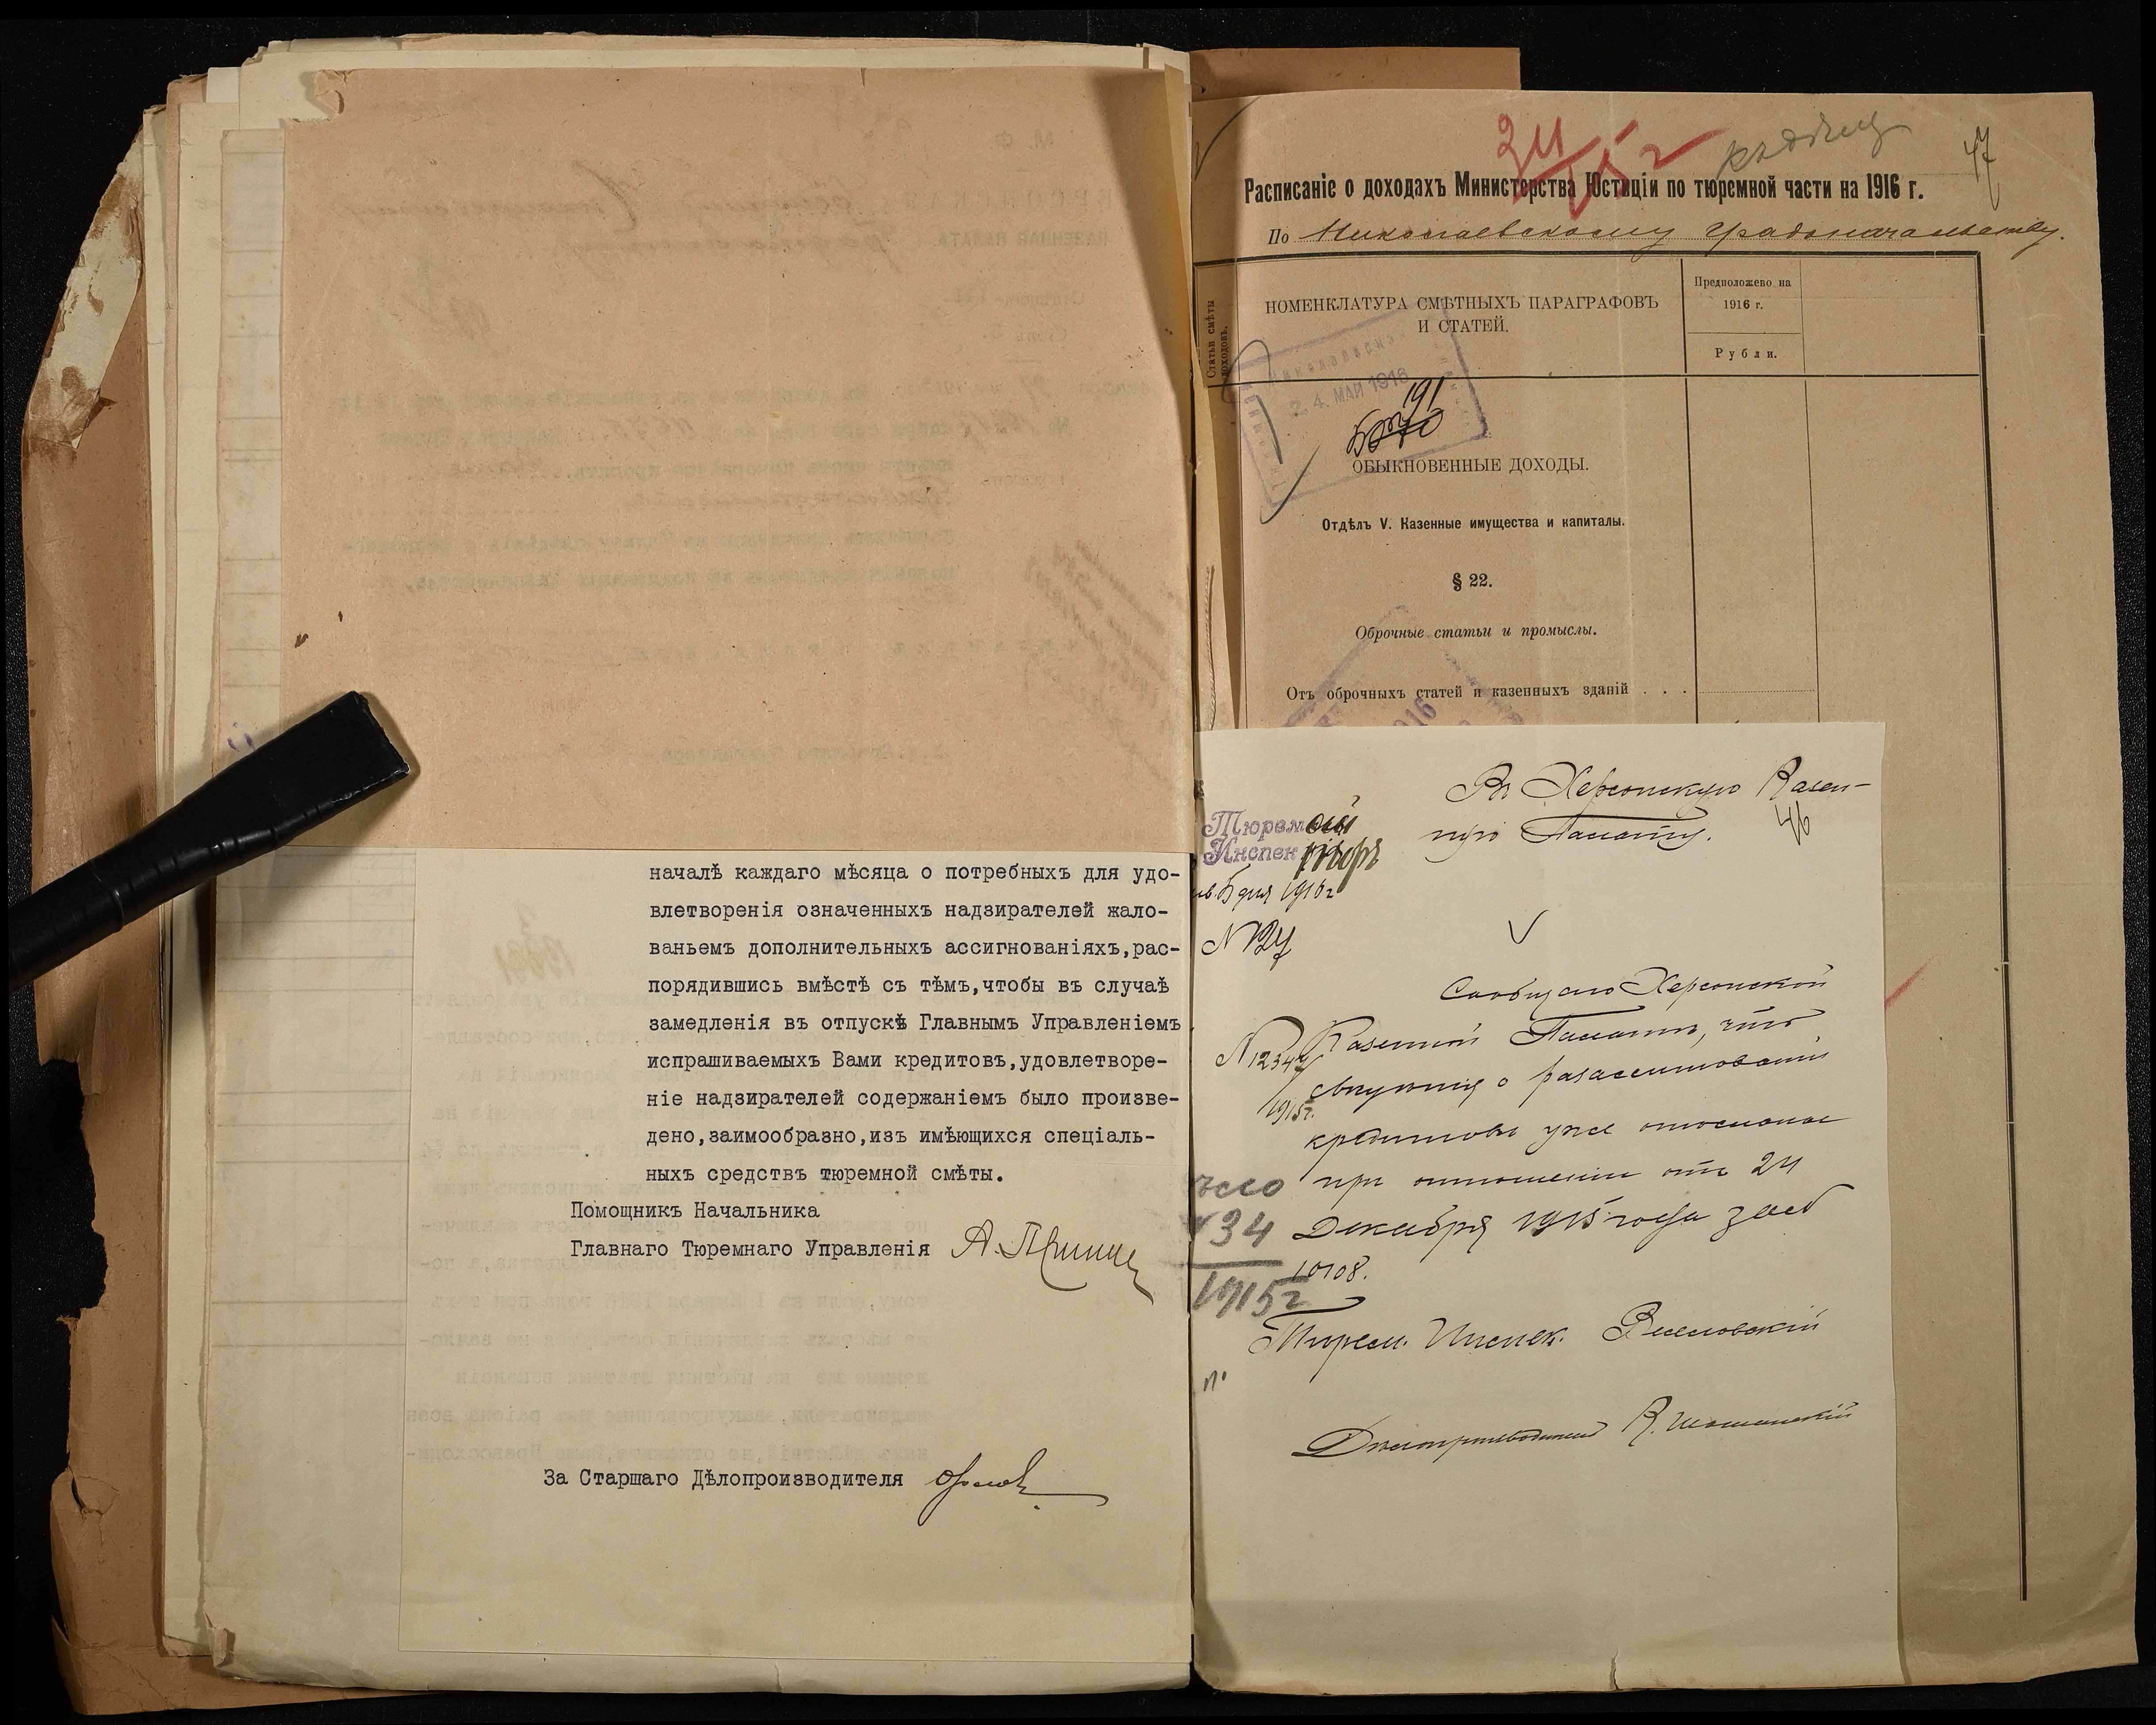 началѣ каждаго мѣсяца о потребныхъ для удо-
влетворенія означенныхъ надзирателей жало-
ваньемъ дополнительныхъ ассигнованіяхъ,рас-
порядившись вмѣстѣ съ тѣмъ,чтобы въ случаѣ
замедленія въ отпускѣ Главнымъ Управленіемъ
испрашиваемыхъ Вами кредитовъ,удовлетворе-
ніе надзирателей содержаніемъ было произве-
дено,заимообразно,изъ имѣющихся спеціаль-
ныхъ средствъ тюремной смѣты.
Помощникъ Начальника
Главнаго Тюремнаго Управленія
За Старшаго Дѣлопроизводителя Орлов
47
Расписаніе о доходахъ Министерства Юстиціи по тюремной части на 1916 г.
По Николаевскому Градоначальству.
Статьи смѣты доходовъ.
НОМЕНКЛАТУРА СМѢТНЫХЪ ПАРАГРАФОВЪ
И СТАТЕЙ.
Предположено на
1916 г.
Рубли.
24 МАЙ 1916
191
ОБЫКНОВЕННЫЕ ДОХОДЫ.
Отдѣлъ V. Казенные имущества и капиталы.
§ 22.
Оброчные статьи и промыслы.
Отъ оброчныхъ статей и казенныхъ зданій . . .
Въ Херсонскую Казен-
ную Палату.
46
Тюремный
Инспекторъ
5 дня 1916 г
N 124
Сообщаю Херсонской
N 12347
1915 г.
Казенной Палатѣ, что
свѣдѣнія о разассигнованіи
кредитовъ уже отосланы
при отношеніи отъ 24
Декабря 1915 года за №
10108.
34
1915 г
Тюрем. Инспек.
Дѣлопроизводитель